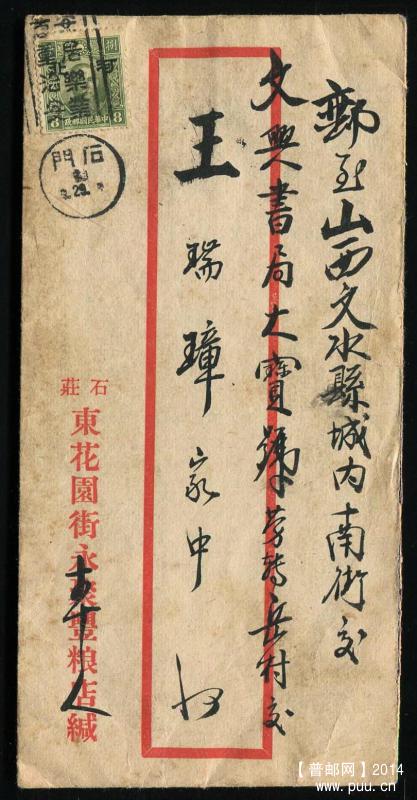 郵至山西文水縣城内南街交
文興書局大寶號勞轉岳村交
王瑞璋家中收
石莊
東花園街永聚豐粮店緘
石門
捌
8
8
中華民國郵政
【普邮网】2014
www.puu.cn